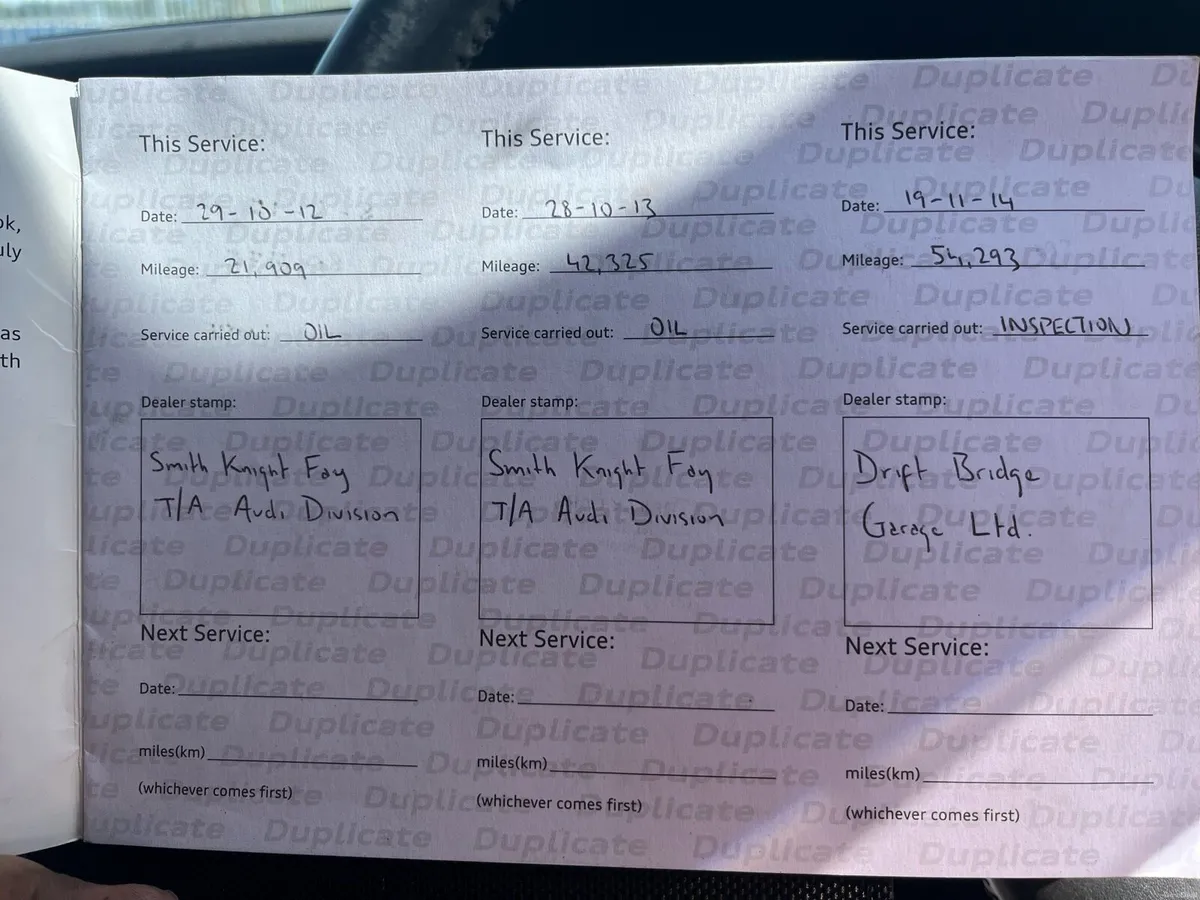 ok,
uly
as
th
This Service:
Date: 29-10-12
Mileage: 21,909
Service carried out: OIL
Dealer stamp:
Smith Knight Fay
T/A Audi Division
Next Service:
Date:
miles(km)
(whichever comes first)
This Service:
Date: 28-10-13
Mileage: 42,325
Service carried out: OIL
Dealer stamp:
Smith Knight Fay
T/A Audi Division
Next Service:
Date:
miles(km)
(whichever comes first)
This Service:
Date: 19-11-14
Mileage: 54,293
Service carried out: INSPECTION
Dealer stamp:
Drift Bridge
Garage Ltd.
Next Service:
Date:
miles(km)
(whichever comes first)
Duplicate